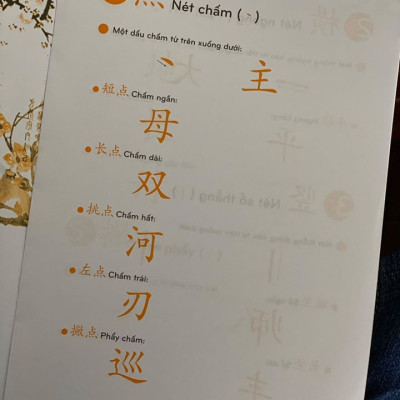 点 Nét chấm ( 丶 )
Một dấu chấm từ trên xuống dưới:
丶 主
短点 Chấm ngắn:
母
长点 Chấm dài:
双
挑点 Chấm hất:
河
左点 Chấm trái:
刃
撇点 Phẩy chấm:
巡